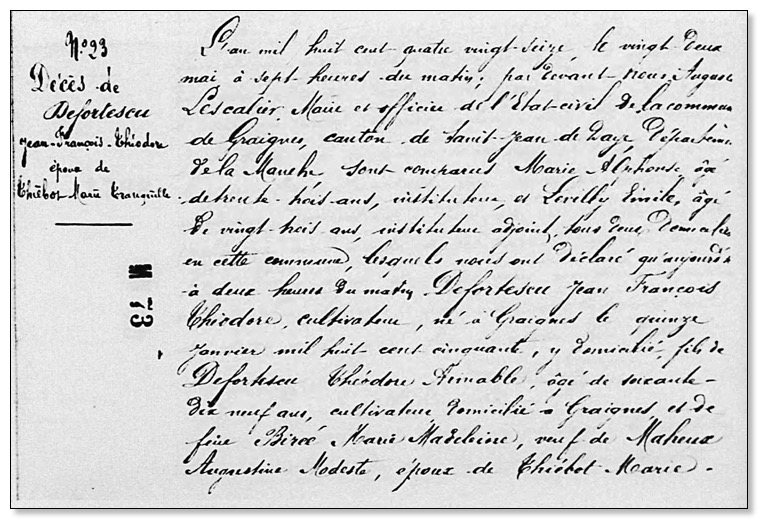 N.º 23
Décès de
Defortescu
Jean-François-Théodore
époux de
Thiébot Marie Tranquille
L'an mil huit cent quatre vingt-seize, le vingt-deux
mai à sept-heures du matin, par devant-nous Auguste
Lescalier Maire et officier de l'Etat-civil de la commune
de Graignes, canton de Saint-Jean de Daye, Départem.
de la Manche sont comparus Marie Alphonse, âgé
de trente-trois ans, instituteur, et Levilly Emile, âgé
de vingt-trois ans, instituteur adjoint, tous deux domiciliés
en cette commune, lesquels nous ont déclaré qu'aujourd'h
à deux heures du matin Defortescu Jean François
Théodore, cultivateur, né à Graignes le quinze
janvier mil huit cent cinquante, y domicilié, fils de
Defortescu Théodore Aimable, âgé de soixante-
dix neuf ans, cultivateur domicilié à Graignes, et de
feue Bireé Marie Madeleine, veuf de Maheux
Augustine Modeste, époux de Thiébot Marie-